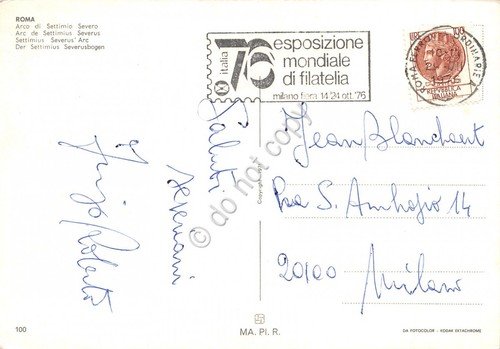 ROMA
Arco di Settimio Severo
Arc de Settimius Severus
Settimius Severus' Arc
Der Settimius Severusbogen
italia 76
esposizione
mondiale
di filatelia
milano fiera 14/24 ott. '76
LIRE 100
REPUBBLICA
ITALIANA
Saluti
Jean Blanchaert
Pza S. Ambrogio 14
20100 Milano
do not copy
100
MA. PI. R.
DA FOTOCOLOR - KODAK EKTACHROME